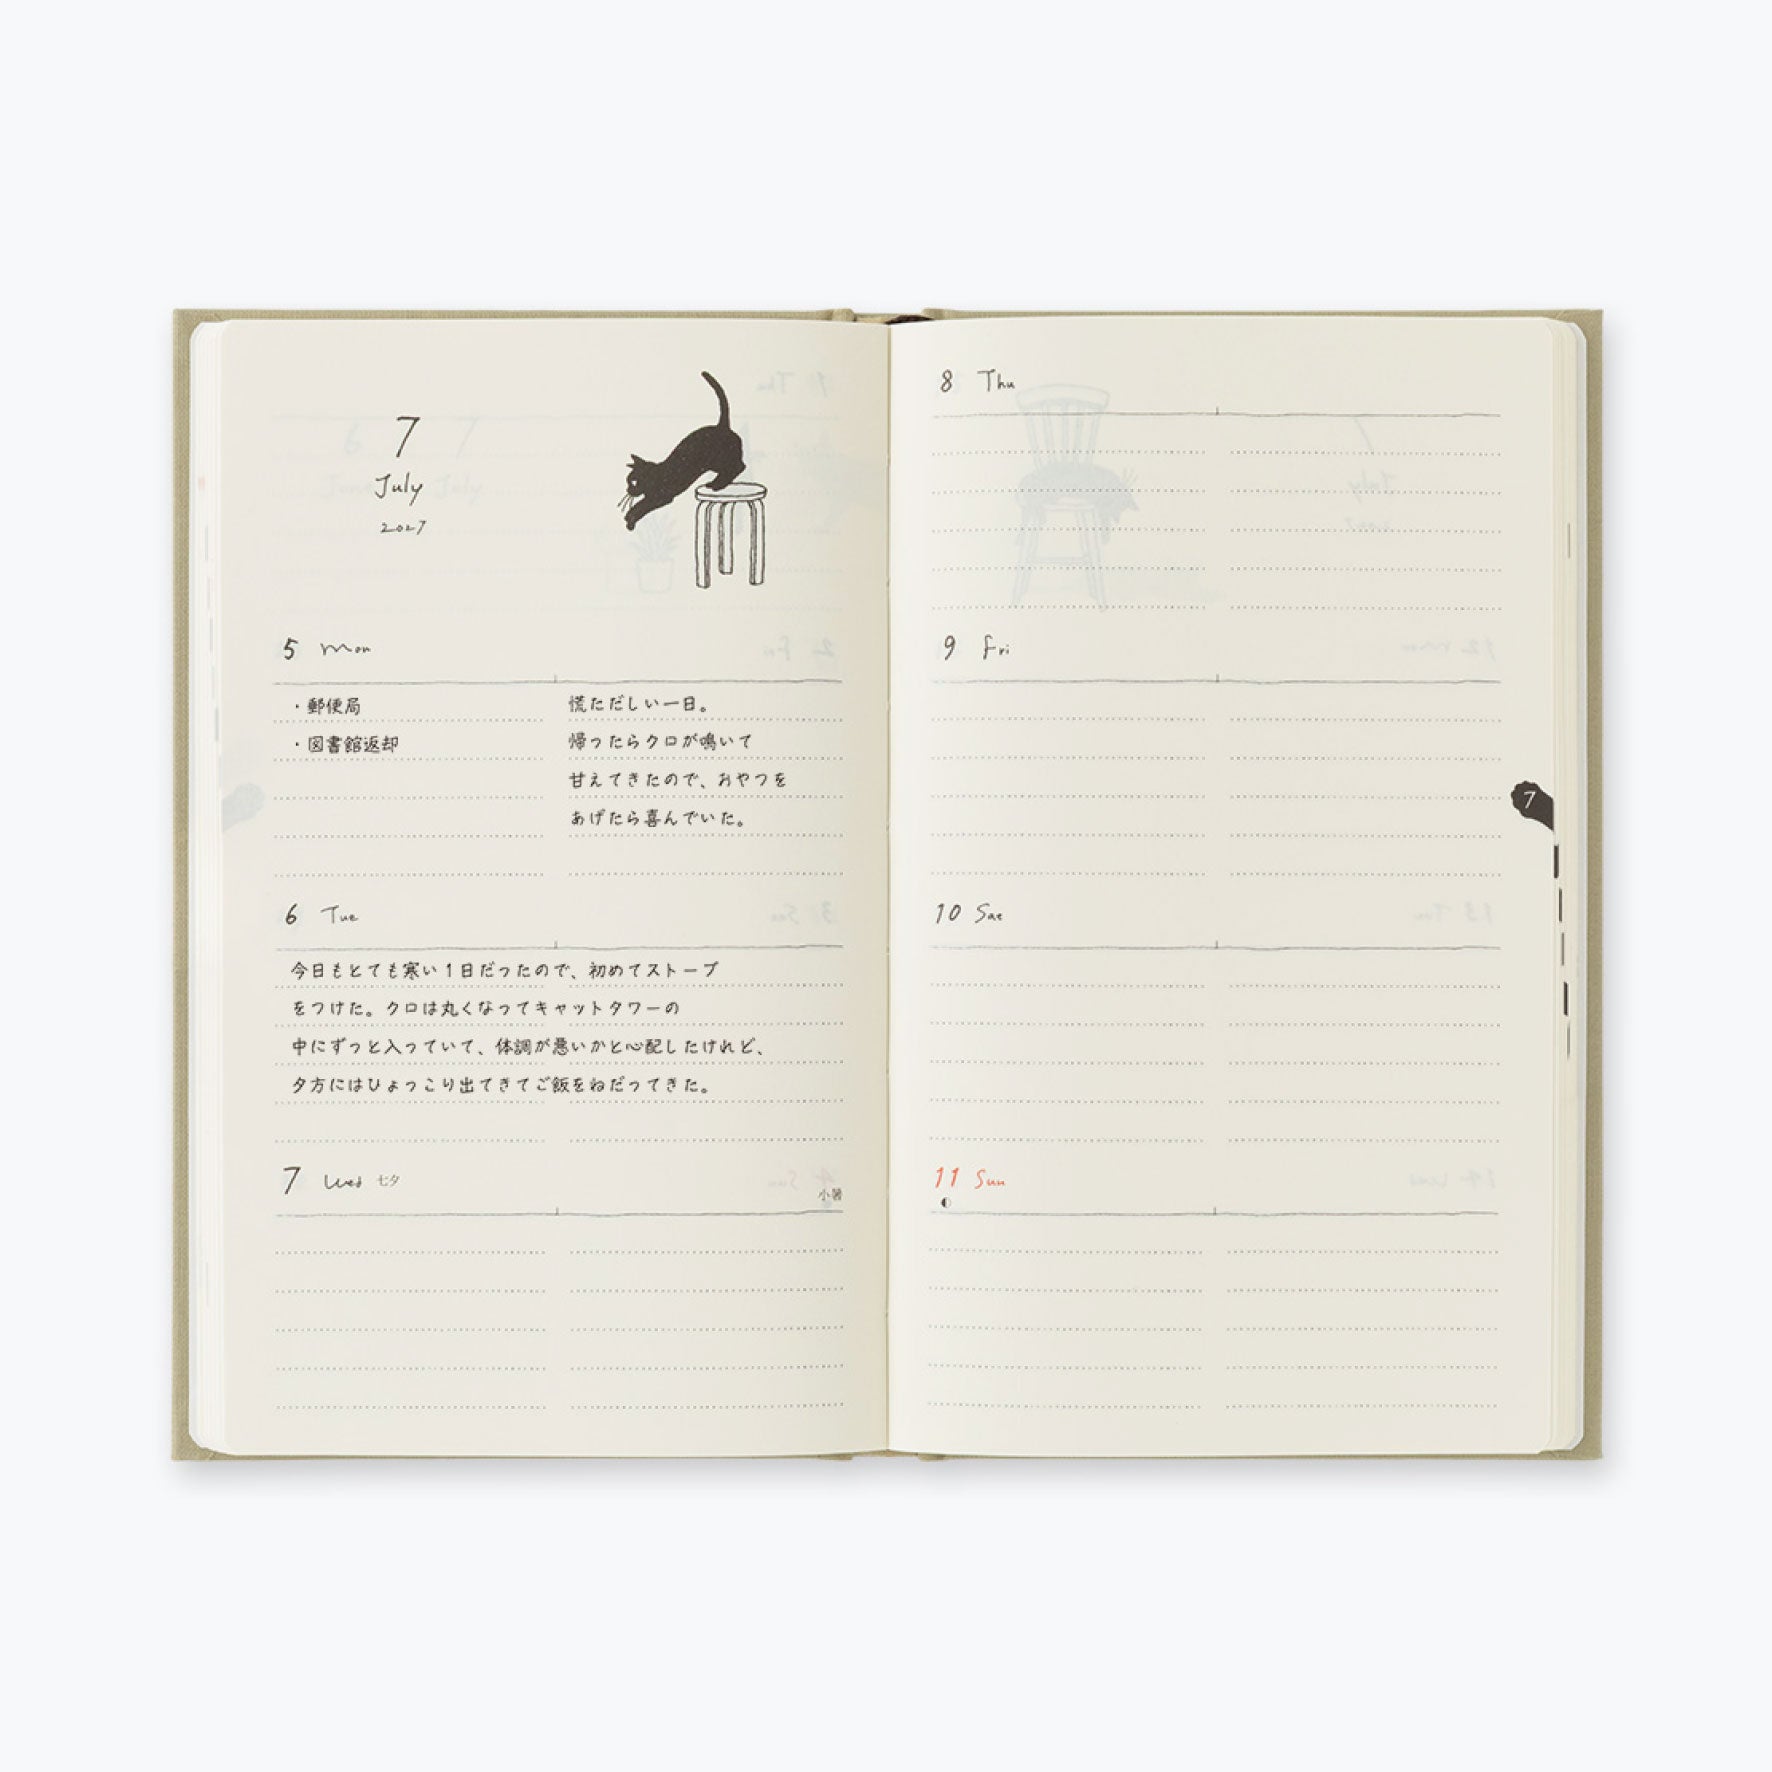 7
July
2027
5 Mon
・郵便局
・図書館返却
慌ただしい一日。
帰ったらクロが鳴いて
甘えてきたので、おやつを
あげたら喜んでいた。
6 Tue
今日もとても寒い1日だったので、初めてストーブ
をつけた。クロは丸くなってキャットタワーの
中にずっと入っていて、体調が悪いかと心配したけれど、
夕方にはひょっこり出てきてご飯をねだってきた。
7 Wed 七夕
小暑
8 Thu
9 Fri
7
10 Sat
11 Sun